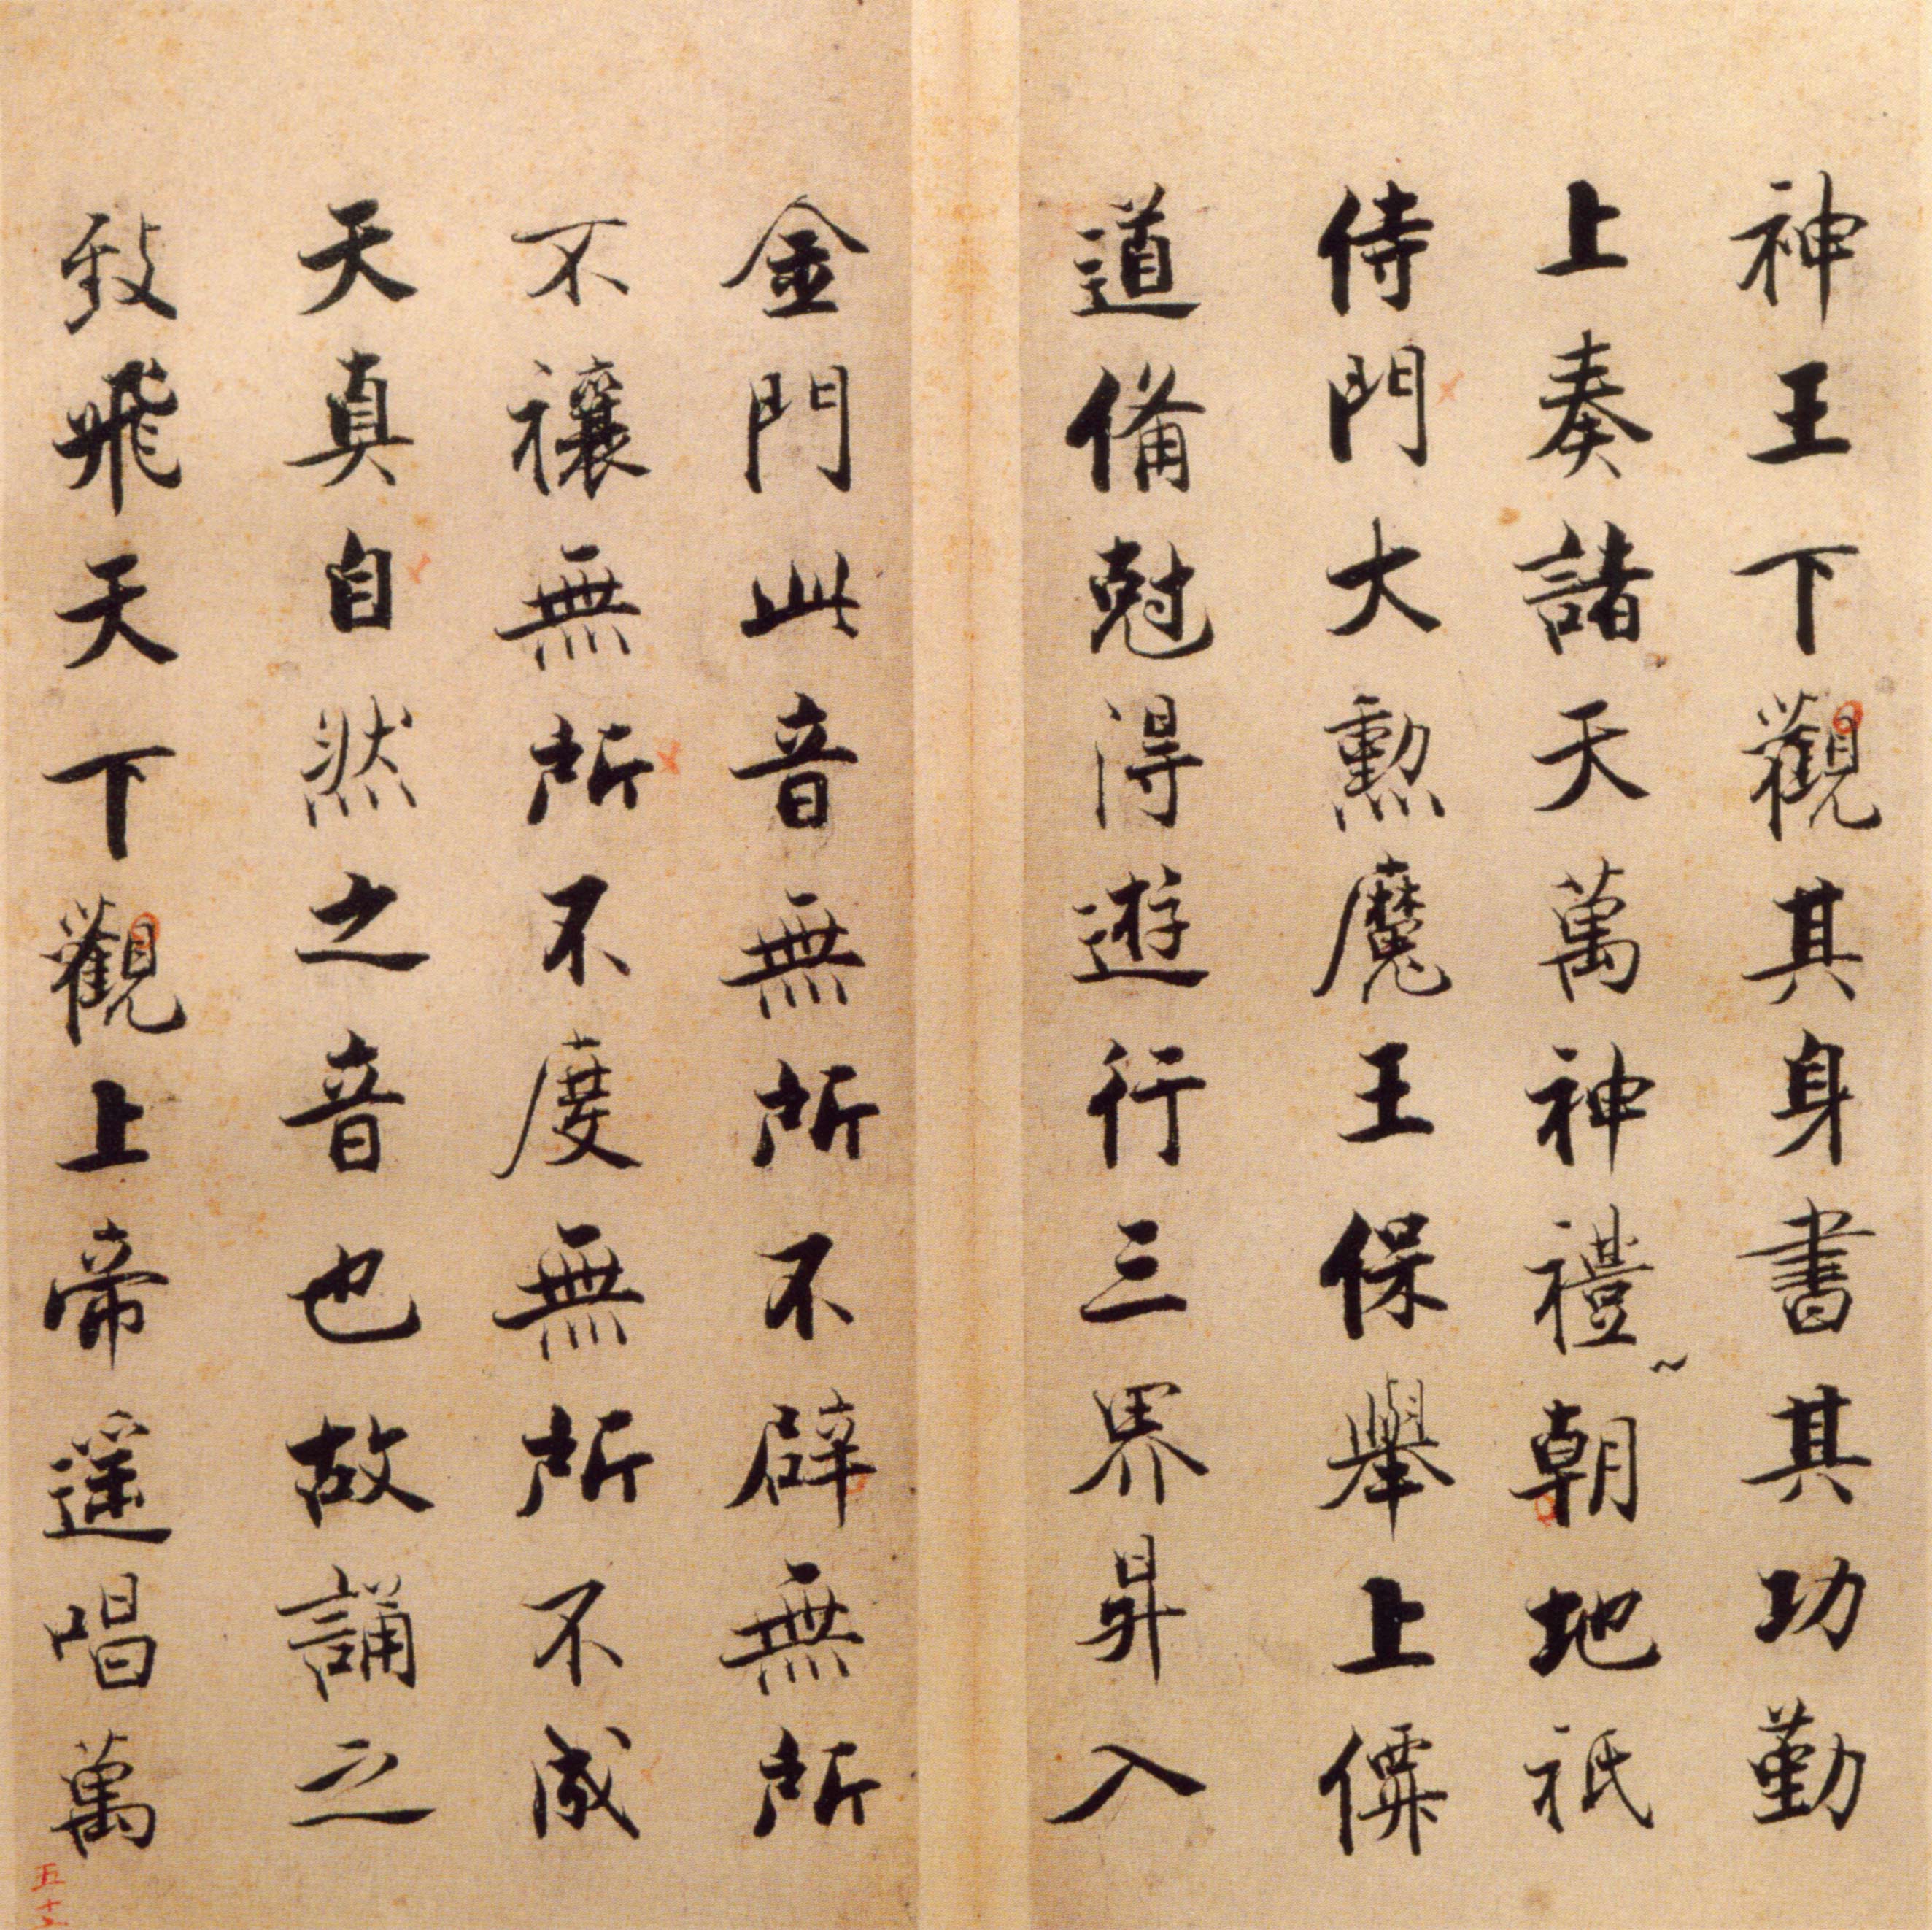 神王下觀其身書其功勤
上奏諸天萬神禮朝地祇
侍門大勳魔王保舉上僊
道備尅得遊行三界昇入
金門此音無所不辟無所
不禳無所不度無所不成
天真自然之音也故誦之
致飛天下觀上帝遥唱萬
五十